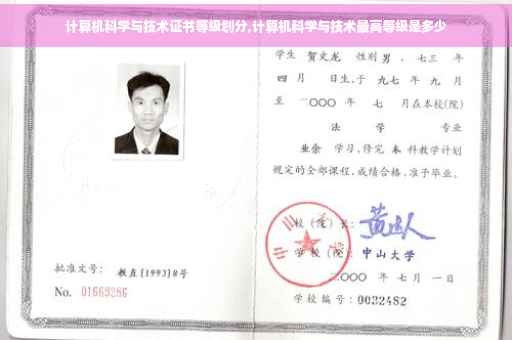 计算机科学与技术证书等级划分,计算机科学与技术最高等级是多少
学生 贺文龙 性别 男 、七三 年
四 月 日生,于 九七 年 九 月
至 二〇〇〇 年 七 月在本校(院)
法 学 专业
业余 学习,修完 本 科教学计划
规定的全部课程,成绩合格,准予毕业。
校(院)长:
学 校(院): 中山大学
二〇〇〇 年 七 月 一 日
学校编号: 0032482
批准文号: 教直[1993]8号
No. 01669286